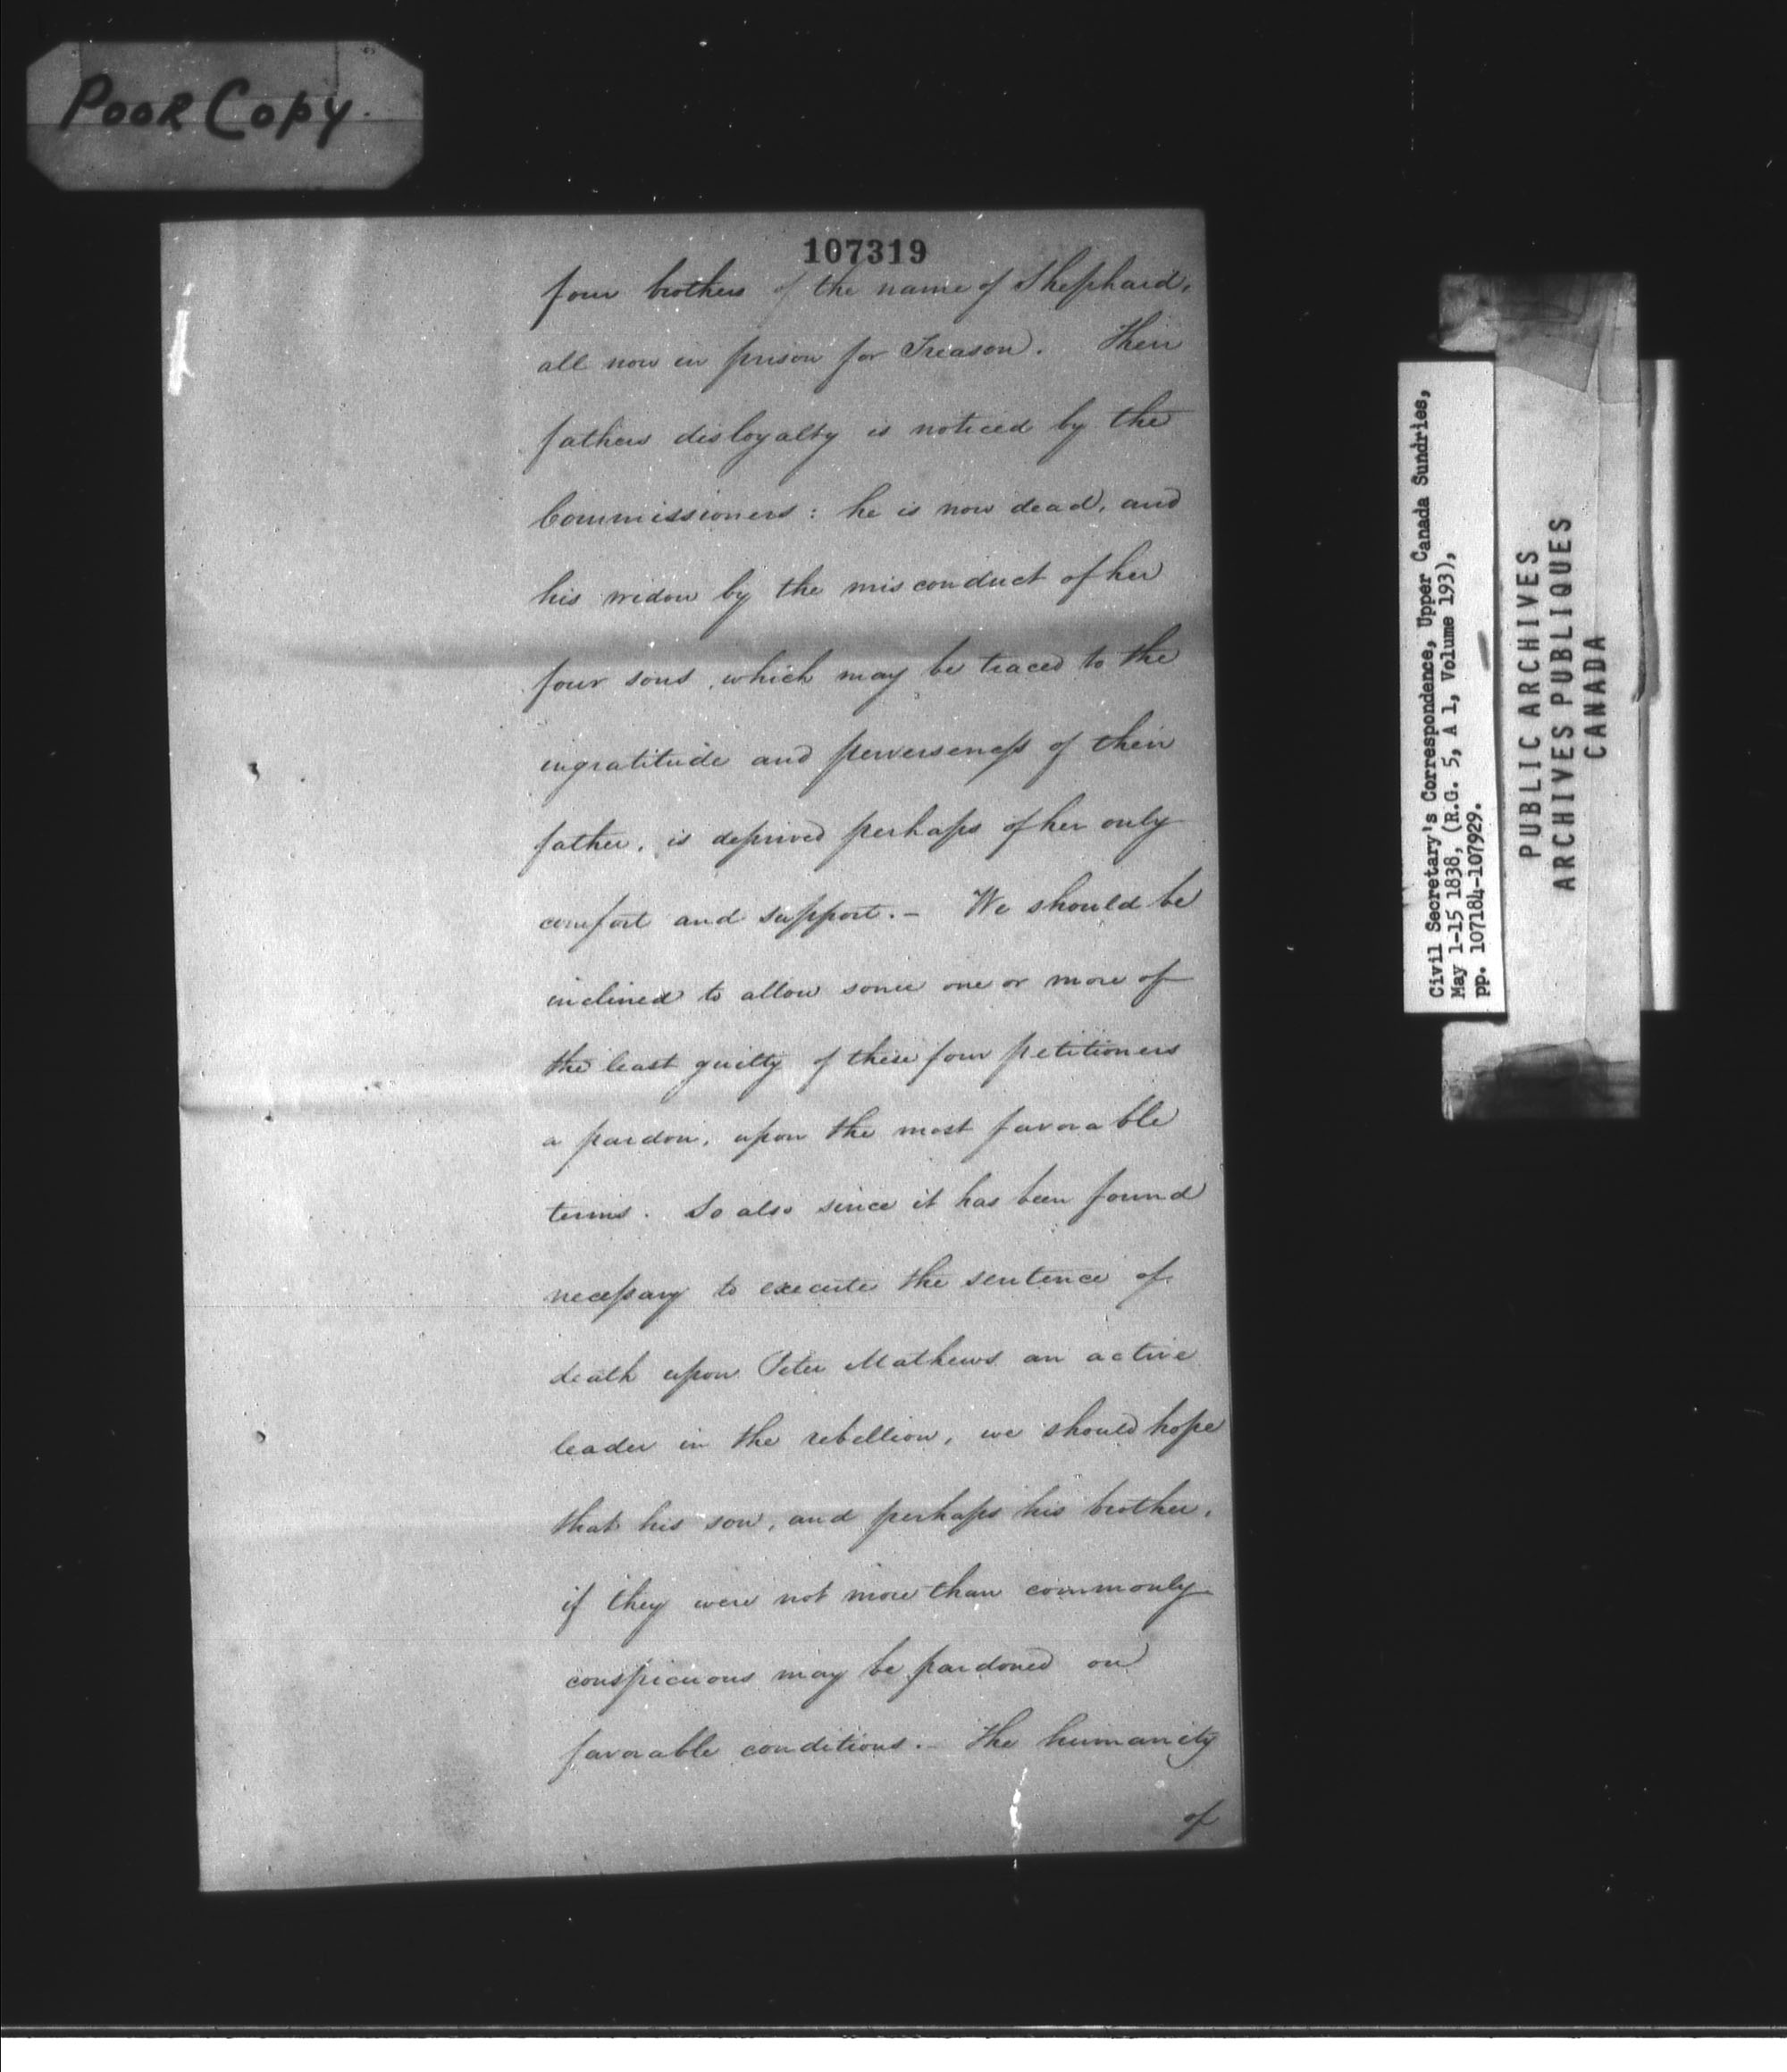 POOR COPY.
107319
four brothers of the name of Shephard,
all now in prison for Treason. Their
fathers disloyalty is noticed by the
Commissioners: he is now dead, and
his widow by the misconduct of her
four sons, which may be traced to the
ingratitude and perverseness of their
father, is deprived perhaps of her only
comfort and support. – We should be
inclined to allow some one or more of
the least guilty of these four petitioners
a pardon, upon the most favorable
terms. So also since it has been found
necessary to execute the sentence of
death upon Peter Mathews an active
leader in the rebellion, we should hope
that his son, and perhaps his brother,
if they were not more than commonly
conspicuous may be pardoned on
favorable conditions. – The humanity
of
Civil Secretary's Correspondence, Upper Canada Sundries,
May 1-15 1838, (R.G. 5, A 1, Volume 193),
pp. 107184-107929.
PUBLIC ARCHIVES
ARCHIVES PUBLIQUES
CANADA